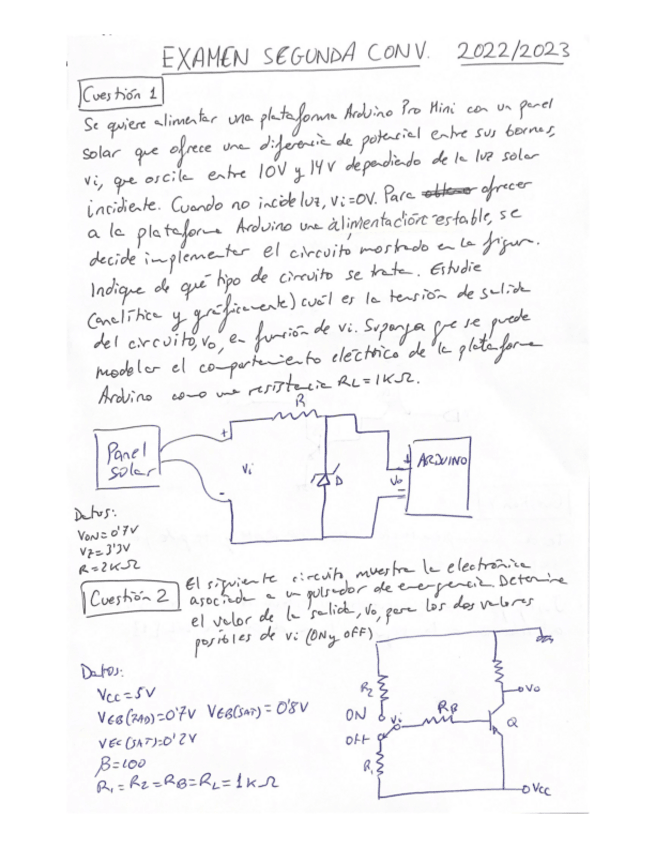 EXAMEN SEGUNDA CONV. 2022/2023
Cuestión 1
Se quiere alimentar una plataforma Arduino Pro Mini con un panel
solar que ofrece una diferencia de potencial entre sus bornes,
vi, que oscila entre 10V y 14V dependiendo de la luz solar
incidente. Cuando no incide luz, vi=0V. Para ofrecer
a la plataforma Arduino una alimentación estable, se
decide implementar el circuito mostrado en la figura.
Indique de qué tipo de circuito se trata. Estudie
(analítica y gráficamente) cuál es la tensión de salida
del circuito, vo, en función de vi. Suponga que se puede
modelar el comportamiento eléctrico de la plataforma
Arduino como una resistencia RL=1KΩ.
R
+
Panel
solar
Vi
D
Vo
ARDUINO
-
Datos:
VON=0'7V
VZ=3'3V
R=2KΩ
Cuestión 2
El siguiente circuito muestra la electrónica
asociada a un pulsador de emergencia. Determine
el valor de la salida, Vo, para los dos valores
posibles de vi (ON y OFF)
Datos:
Vcc=5V
VEB(ZAD)=0'7V VEB(SAT)=0'8V
VEC(SAT)=0'2V
β=100
R1=R2=RB=RL=1KΩ
R2
ON
OFF
Vi
RB
Q
Vo
R1
Vcc